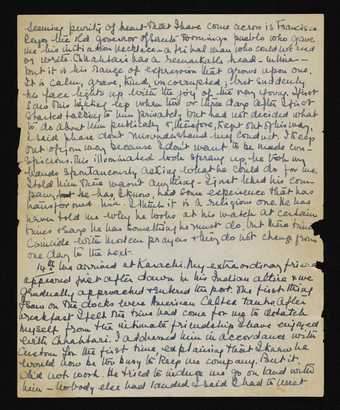 seeming purity of heart that I have come across is Francisco
the old Governor of Santo Domingo pueblo who gave
me his initiation necklace - a tribal man who could not read
or write. Chhahtari has a remarkable head - white -
but it is his range of expression that grows upon one.
It is calm, grave, kind, uncorrupted, but suddenly
his face lights up with the joy of the very young. I first
saw this lighting up when two or three days after I first
started talking to him privately but had not decided what
to do about him publicly & therefore, kept out of his way,
I said please don't misunderstand my conduct. I keep
out of your way because I don't want to be made con-
spicuous. This illuminated look sprang up - he took my
hands spontaneously asking what he could do for me.
I told him I was want anything - I just liked his com-
pany, he has, I know, had some experience that has
transformed him. I think it is a religious one. He has
never told me why he looks at his watch at certain
times & says he has something he must do but these times
coincide with Moslem prayers & they do not change from
one day to the next.
14th we arrived at Karachi. My extraordinary friend
appeared just after dawn in his Indian attire & we
gradually approached & entered the port. The first thing
I saw on the docks were American Caltex tanks. After
breakfast I felt the time had come for me to detach
myself from the intimate friendship I have enjoyed
with Chhahtari. I addressed him in accordance with
custom for the first time explaining that I knew he
would now be too busy to keep me company. But it
did not work. He tried to induce me go on land with
him - nobody else had landed. I said I had to meet